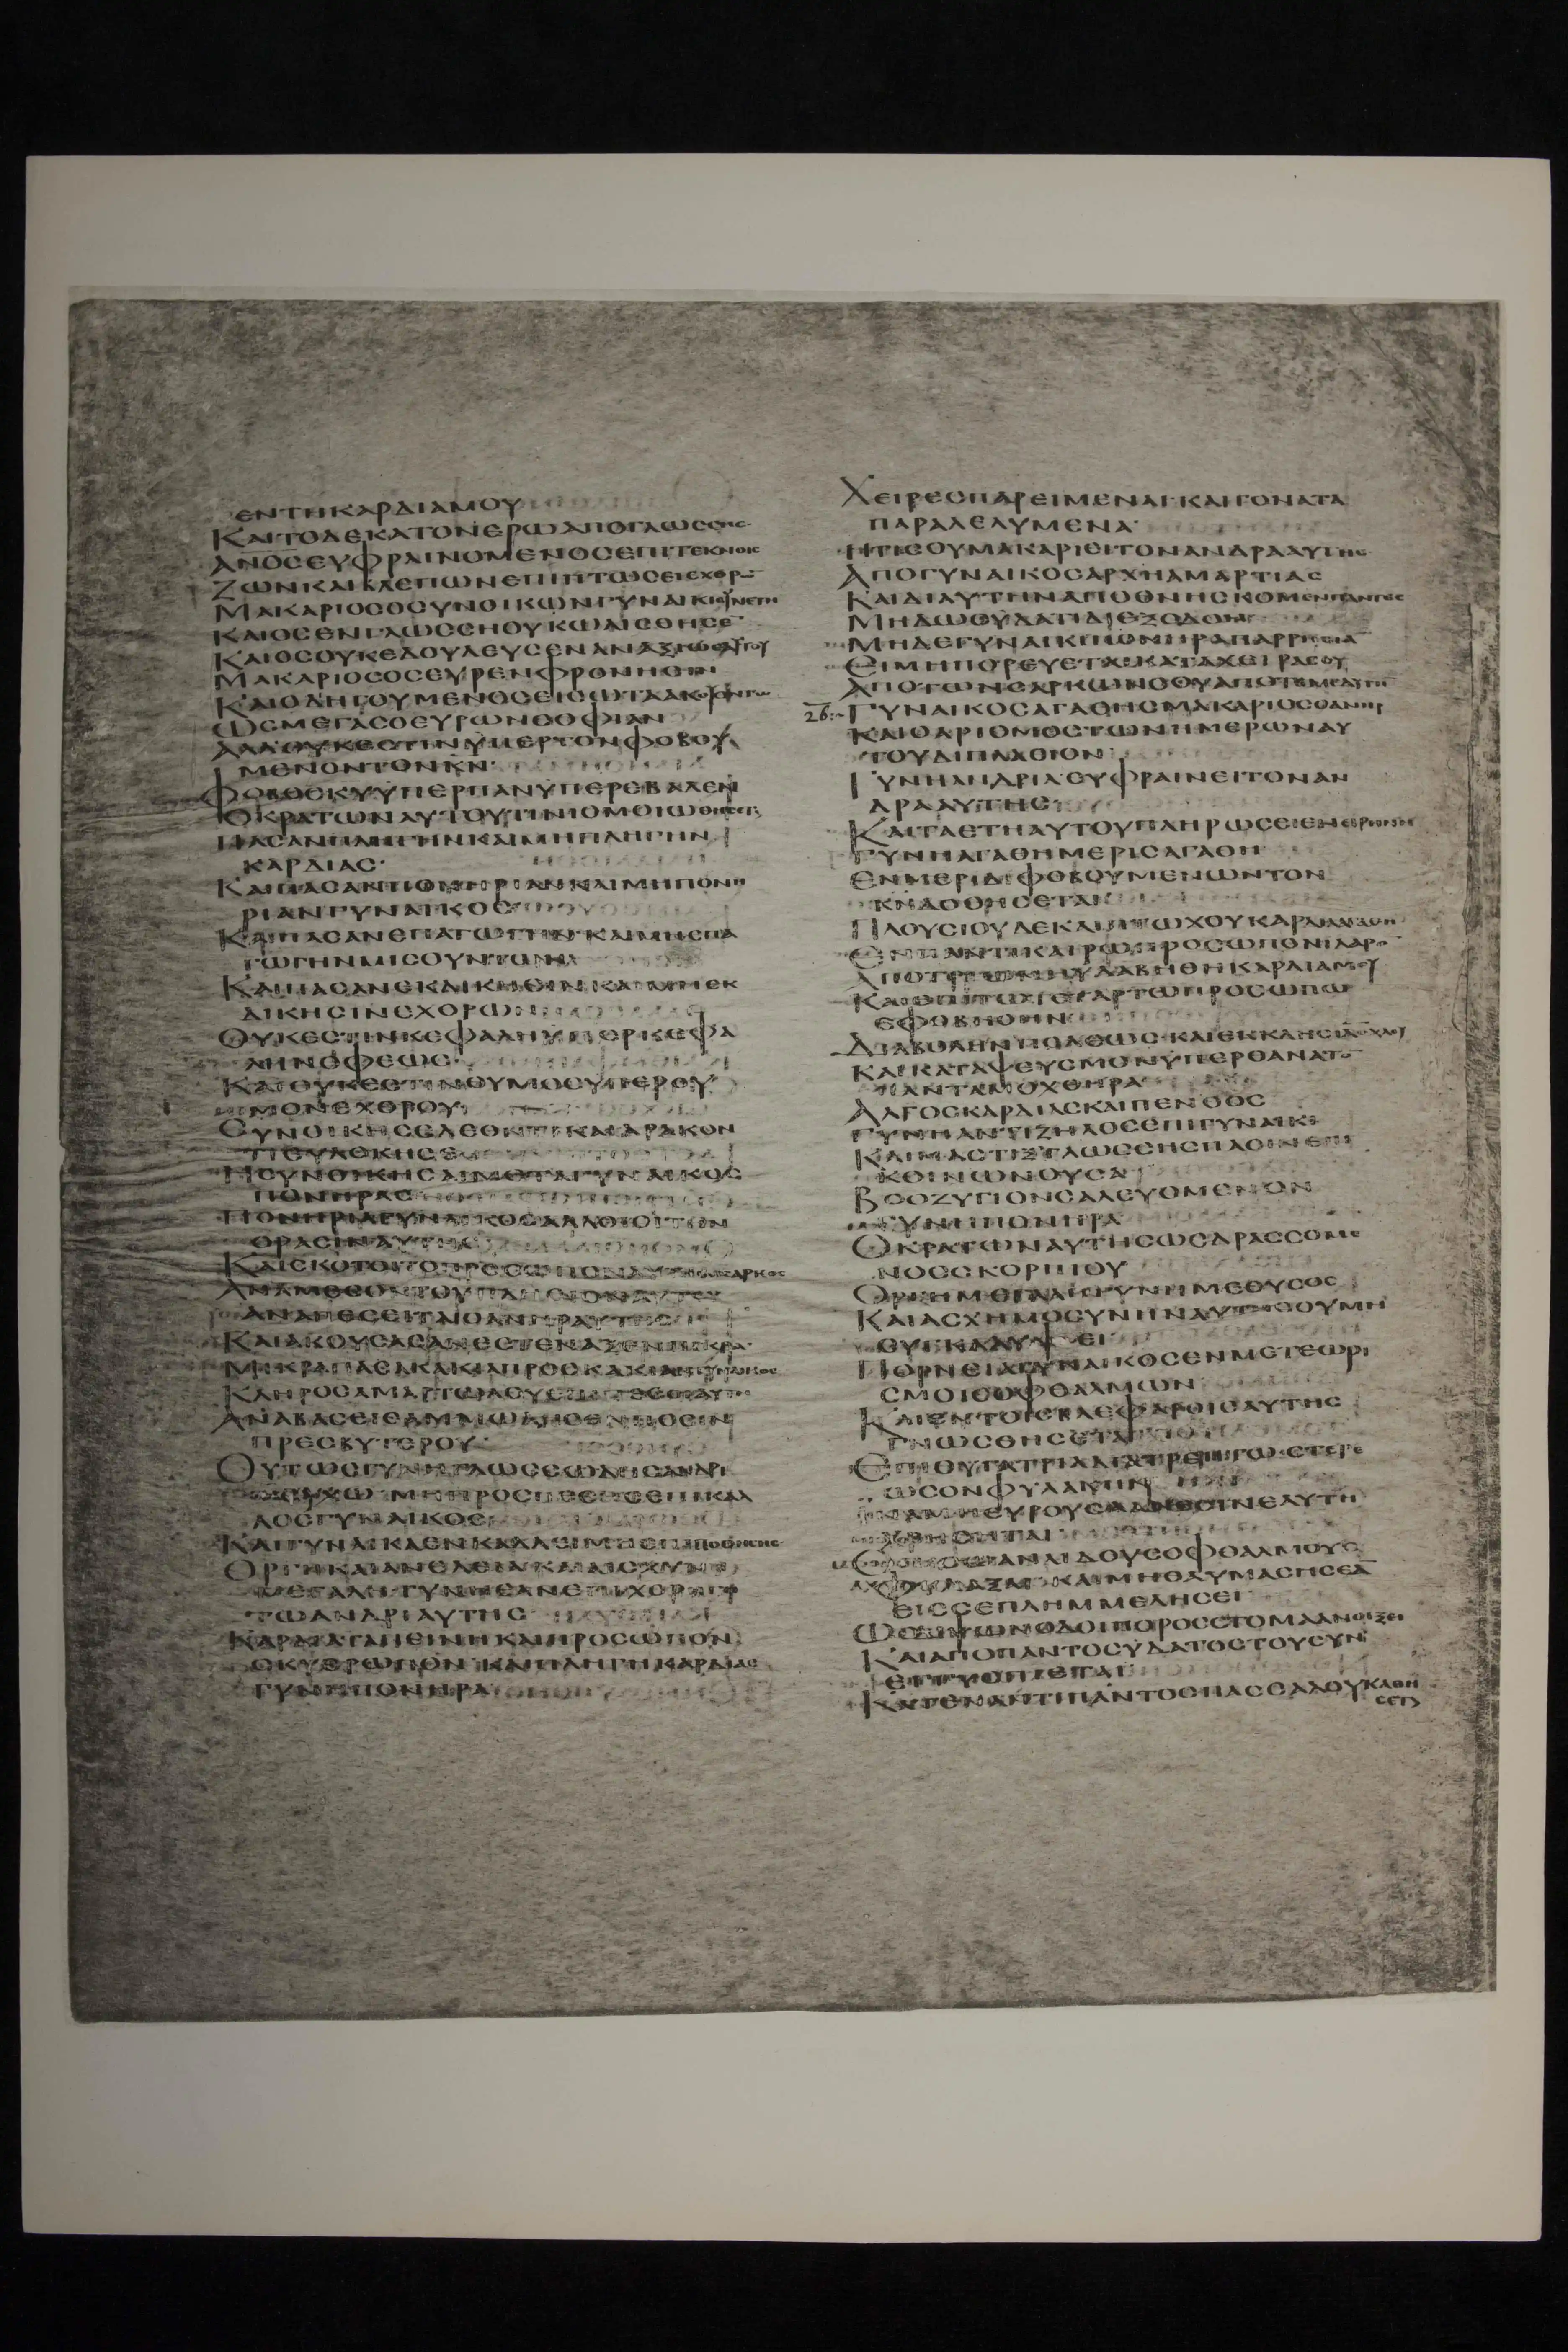 ΕΝΤΗΚΑΡΔΙΑΜΟΥ
ΚΑΙΤΟΔΕΚΑΤΟΝΕΡΩΑΠΟΓΛΩCCΗC
ΑΝΟCΕΥΦΡΑΙΝΟΜΕΝΟCΕΠΙΤΕΚΝΟΙC
ΖΩΝΚΑΙΒΛΕΠΩΝΕΠΙΠΤΩCΕΙΕΧΘΡΩ
ΜΑΚΑΡΙΟCΟCΥΝΟΙΚΩΝΓΥΝΑΙΚΙ
ΚΑΙΟCΕΝΓΛΩCCΗΟΥΚΩΛΙCΘΗCΕ
ΚΑΙΟCΟΥΚΕΔΟΥΛΕΥCΕΝΑΝΑΞΙΩΑΥΤΟΥ
ΜΑΚΑΡΙΟCΟCΕΥΡΕΝΦΡΟΝΗCΙΝ
ΚΑΙΟΔΙΗΓΟΥΜΕΝΟCΕΙCΩΤΑΑΚΟΥΟΝΤΩ
ΩCΜΕΓΑCΟΕΥΡΩΝCΟΦΙΑΝ
ΑΛΛΟΥΚΕCΤΙΝΥΠΕΡΤΟΝΦΟΒΟΥ
ΜΕΝΟΝΤΟΝΚΝ·
ΦΟΒΟCΚΥΥΠΕΡΠΑΝΥΠΕΡΕΒΑΛΕΝ
ΟΚΡΑΤΩΝΑΥΤΟΥΤΙΝΙΟΜΟΙΩΘΗCΕΤΑΙ
ΠΑCΑΝΠΛΗΓΗΝΚΑΙΜΗΠΛΗΓΗΝ
ΚΑΡΔΙΑC·
ΚΑΙΠΑCΑΝΠΟΝΗΡΙΑΝΚΑΙΜΗΠΟΝΗ
ΡΙΑΝΓΥΝΑΙΚΟC
ΚΑΙΠΑCΑΝΕΠΑΓΩΓΗΝΚΑΙΜΗΕΠΑ
ΓΩΓΗΝΜΙCΟΥΝΤΩΝ
ΚΑΙΠΑCΑΝΕΚΔΙΚΗCΙΝΚΑΙΜΗΕΚ
ΔΙΚΗCΙΝΕΧΘΡΩΝ
ΟΥΚΕCΤΙΝΚΕΦΑΛΗΥΠΕΡΚΕΦΑ
ΛΗΝΟΦΕΩC·
ΚΑΙΟΥΚΕCΤΙΝΘΥΜΟCΥΠΕΡΘΥ
ΜΟΝΕΧΘΡΟΥ·
CΥΝΟΙΚΗCΕΛΕΟΝΤΙΚΑΙΔΡΑΚΟΝ
ΤΙΕΥΔΟΚΗCΕ
ΗCΥΝΟΙΚΗCΑΙΜΕΤΑΓΥΝΑΙΚΟC
ΠΟΝΗΡΑC
ΠΟΝΗΡΙΑΓΥΝΑΙΚΟCΑΛΛΟΙΟΙΤΗΝ
ΟΡΑCΙΝΑΥΤΗC
ΚΑΙCΚΟΤΟΙΤΟΠΡΟCΩΠΟΝΑΥΤΗC
ΑΝΑΜΕCΟΝΤΟΥΠΛΗCΙΟΝΑΥΤΟΥ
ΑΝΑΠΕCΕΙΤΑΙΟΑΝΗΡΑΥΤΗC
ΚΑΙΑΚΟΥCΑCΑΝΕCΤΕΝΑΞΕΝΠΙΚΡΑ
ΜΙΚΡΑΠΑCΑΚΑΚΙΑΠΡΟCΚΑΚΙΑΝΓΥΝΑΙΚΟC
ΚΛΗΡΟCΑΜΑΡΤΩΛΟΥ
ΑΝΑΒΑCΕΙCΑΜΜΩΔΗCΕΝΠΟCΙΝ
ΠΡΕCΒΥΤΕΡΟΥ
ΟΥΤΩCΓΥΝΗΓΛΩCCΩΔΗCΑΝΔΡΙ
ΗCΥΧΩ ΜΗΠΡΟCΠΕCΗCΕΠΙΚΑΛ
ΛΟCΓΥΝΑΙΚΟC
ΚΑΙΓΥΝΑΙΚΑΕΝΚΑΛΛΕΙΜΗΕΠΙΠΟΘΗCΗC
ΟΡΓΗΚΑΙΑΝΑΙΔΕΙΑΚΑΙΑΙCΧΥΝΗ
ΜΕΓΑΛΗΓΥΝΗΕΑΝΕΠΙΧΟΡΗΓΗ
ΤΩΑΝΔΡΙΑΥΤΗC
ΚΑΡΔΙΑΤΑΠΕΙΝΗΚΑΙΠΡΟCΩΠΟΝ
CΚΥΘΡΩΠΟΝΚΑΙΠΛΗΓΗΚΑΡΔΙΑC
ΓΥΝΗΠΟΝΗΡΑ
ΧΕΙΡΕCΠΑΡΕΙΜΕΝΑΙ·ΚΑΙΓΟΝΑΤΑ
ΠΑΡΑΛΕΛΥΜΕΝΑ·
ΗΤΙCΟΥΜΑΚΑΡΙΕΙΤΟΝΑΝΔΡΑΑΥΤΗC
ΑΠΟΓΥΝΑΙΚΟCΑΡΧΗΑΜΑΡΤΙΑC
ΚΑΙΔΙΑΥΤΗΝΑΠΟΘΝΗCΚΟΜΕΝΠΑΝΤΕC
ΜΗΔΩCΥΔΑΤΙΔΙΕΞΟΔΟΝ
ΜΗΔΕΓΥΝΑΙΚΙΠΟΝΗΡΑΠΑΡΡΗCΙΑ
ΕΙΜΗΠΟΡΕΥΕΤΑΙΚΑΤΑΧΕΙΡΑCΟΥ
ΑΠΟΤΩΝCΑΡΚΩΝCΟΥΑΠΟΤΕΜΕΑΥΤΗ
26 ΓΥΝΑΙΚΟCΑΓΑΘΗCΜΑΚΑΡΙΟCΟΑΝΗΡ
ΚΑΙΟΑΡΙΘΜΟCΤΩΝΗΜΕΡΩΝΑΥ
ΤΟΥΔΙΠΛΑCΙΟΝ
ΓΥΝΗΑΝΔΡΙΑΕΥΦΡΑΙΝΕΙΤΟΝΑΝ
ΔΡΑΑΥΤΗC
ΚΑΙΤΑΕΤΗΑΥΤΟΥΠΛΗΡΩCΕΙΕΝΕΙΡΗΝΗ
ΓΥΝΗΑΓΑΘΗΜΕΡΙCΑΓΑΘΗ
ΕΝΜΕΡΙΔΙΦΟΒΟΥΜΕΝΩΝΤΟΝ
ΚΝΔΟΘΗCΕΤΑΙ
ΠΛΟΥCΙΟΥΔΕΚΑΙΠΤΩΧΟΥΚΑΡΔΙΑΑΓΑΘΗ
ΕΝΠΑΝΤΙΚΑΙΡΩΠΡΟCΩΠΟΝΙΛΑΡΟ
ΑΠΟΤΡΙΩΝΗΥΛΑΒΗΘΗΚΑΡΔΙΑΜΟΥ
ΚΑΙΕΠΙΤΩΤΕΤΑΡΤΩΠΡΟCΩΠΩ
ΕΦΟΒΗΘΗΝ
ΔΙΑΒΟΛΗΝΠΟΛΕΩC·ΚΑΙΕΚΚΛΗCΙΑΝΟΧΛΟΥ
ΚΑΙΚΑΤΑΨΕΥCΜΟΝΥΠΕΡΘΑΝΑΤΟ
ΠΑΝΤΑΜΟΧΘΗΡΑ
ΑΛΓΟCΚΑΡΔΙΑCΚΑΙΠΕΝΘΟC
ΓΥΝΗΑΝΤΙΖΗΛΟCΕΠΙΓΥΝΑΙΚΙ
ΚΑΙΜΑCΤΙΞΓΛΩCCΗCΠΑCΙΝΕΠΙ
ΚΟΙΝΩΝΟΥCΑ
ΒΟΟΖΥΓΙΟΝCΑΛΕΥΟΜΕΝΟΝ
ΓΥΝΗΠΟΝΗΡΑ
ΟΚΡΑΤΩΝΑΥΤΗCΩCΔΡΑCCΟΜΕ
ΝΟCCΚΟΡΠΙΟΥ
ΟΡΓΗΜΕΓΑΛΗΓΥΝΗΜΕΘΥCΟC
ΚΑΙΑCΧΗΜΟCΥΝΗΝΑΥΤΗCΟΥΜΗ
CΥΓΚΑΛΥΨΕΙ
ΠΟΡΝΕΙΑΓΥΝΑΙΚΟCΕΝΜΕΤΕΩΡΙ
CΜΟΙCΟΦΘΑΛΜΩΝ
ΚΑΙΕΝΤΟΙCΒΛΕΦΑΡΟΙCΑΥΤΗC
ΓΝΩCΘΗCΕΤΑΙ
ΕΠΙΘΥΓΑΤΡΙΑΔΙΑΤΡΕΠΤΩCΤΕΡΕ
ΩCΟΝΦΥΛΑΚΗΝ
ΙΝΑΜΗΕΥΡΟΥCΑΑΝΕCΙΝΕΑΥΤΗ
ΧΡΗCΗΤΑΙ
ΟΠΙCΩΑΝΑΙΔΟΥCΟΦΘΑΛΜΟΥ
ΦΥΛΑΞΑΙΚΑΙΜΗΘΑΥΜΑCΗCΕΑ
ΕΙCCΕΠΛΗΜΜΕΛΗCΕΙ
ΩCΔΙΨΩΝΟΔΟΙΠΟΡΟCCΤΟΜΑΑΝΟΙΞΕΙ
ΚΑΙΑΠΟΠΑΝΤΟCΥΔΑΤΟCΤΟΥCΥΝ
ΕΓΓΥCΠΙΕΤΑΙ
ΚΑΤΕΝΑΝΤΙΠΑΝΤΟCΠΑCCΑΛΟΥΚΑΘΗ
CΕΤΑΙ